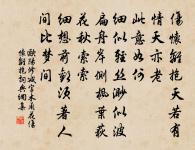 傷懷離抱天若有
情天亦老
此意如何
細似輕絲渺似波
扁舟岸側楓葉荻
花秋索索
細想前歡須著人
間比夢間
歐陽修減字木蘭花傷
懷離抱詞